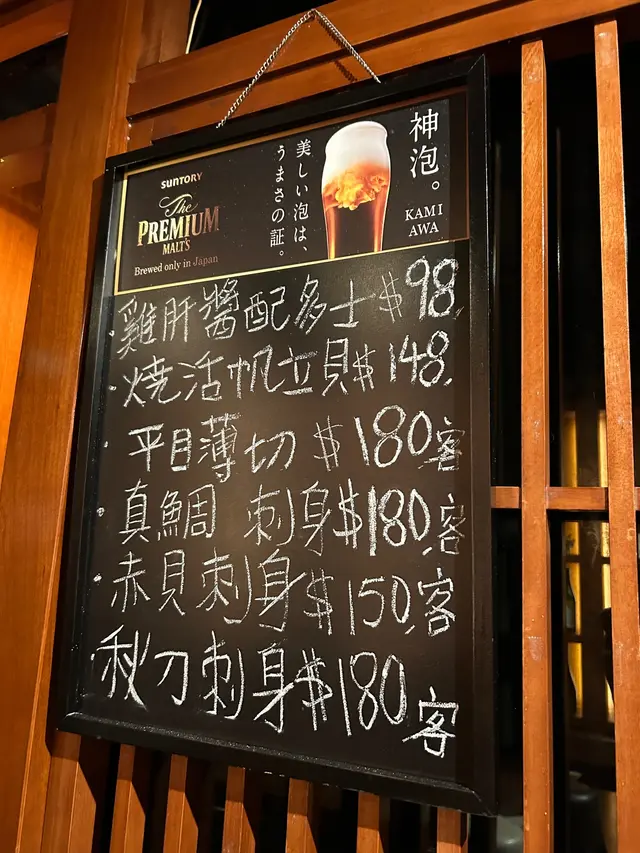 SUNTORY
The
PREMIUM
MALT'S
Brewed only in Japan
神泡。
KAMI
AWA
美しい泡は、
うまさの証。
・雞肝醬配多士$98.
・燒活帆立貝$148.
・平目薄切 $180.客
・真鯛 刺身$180.客
・赤貝刺身$150.客
・秋刀刺身$180客